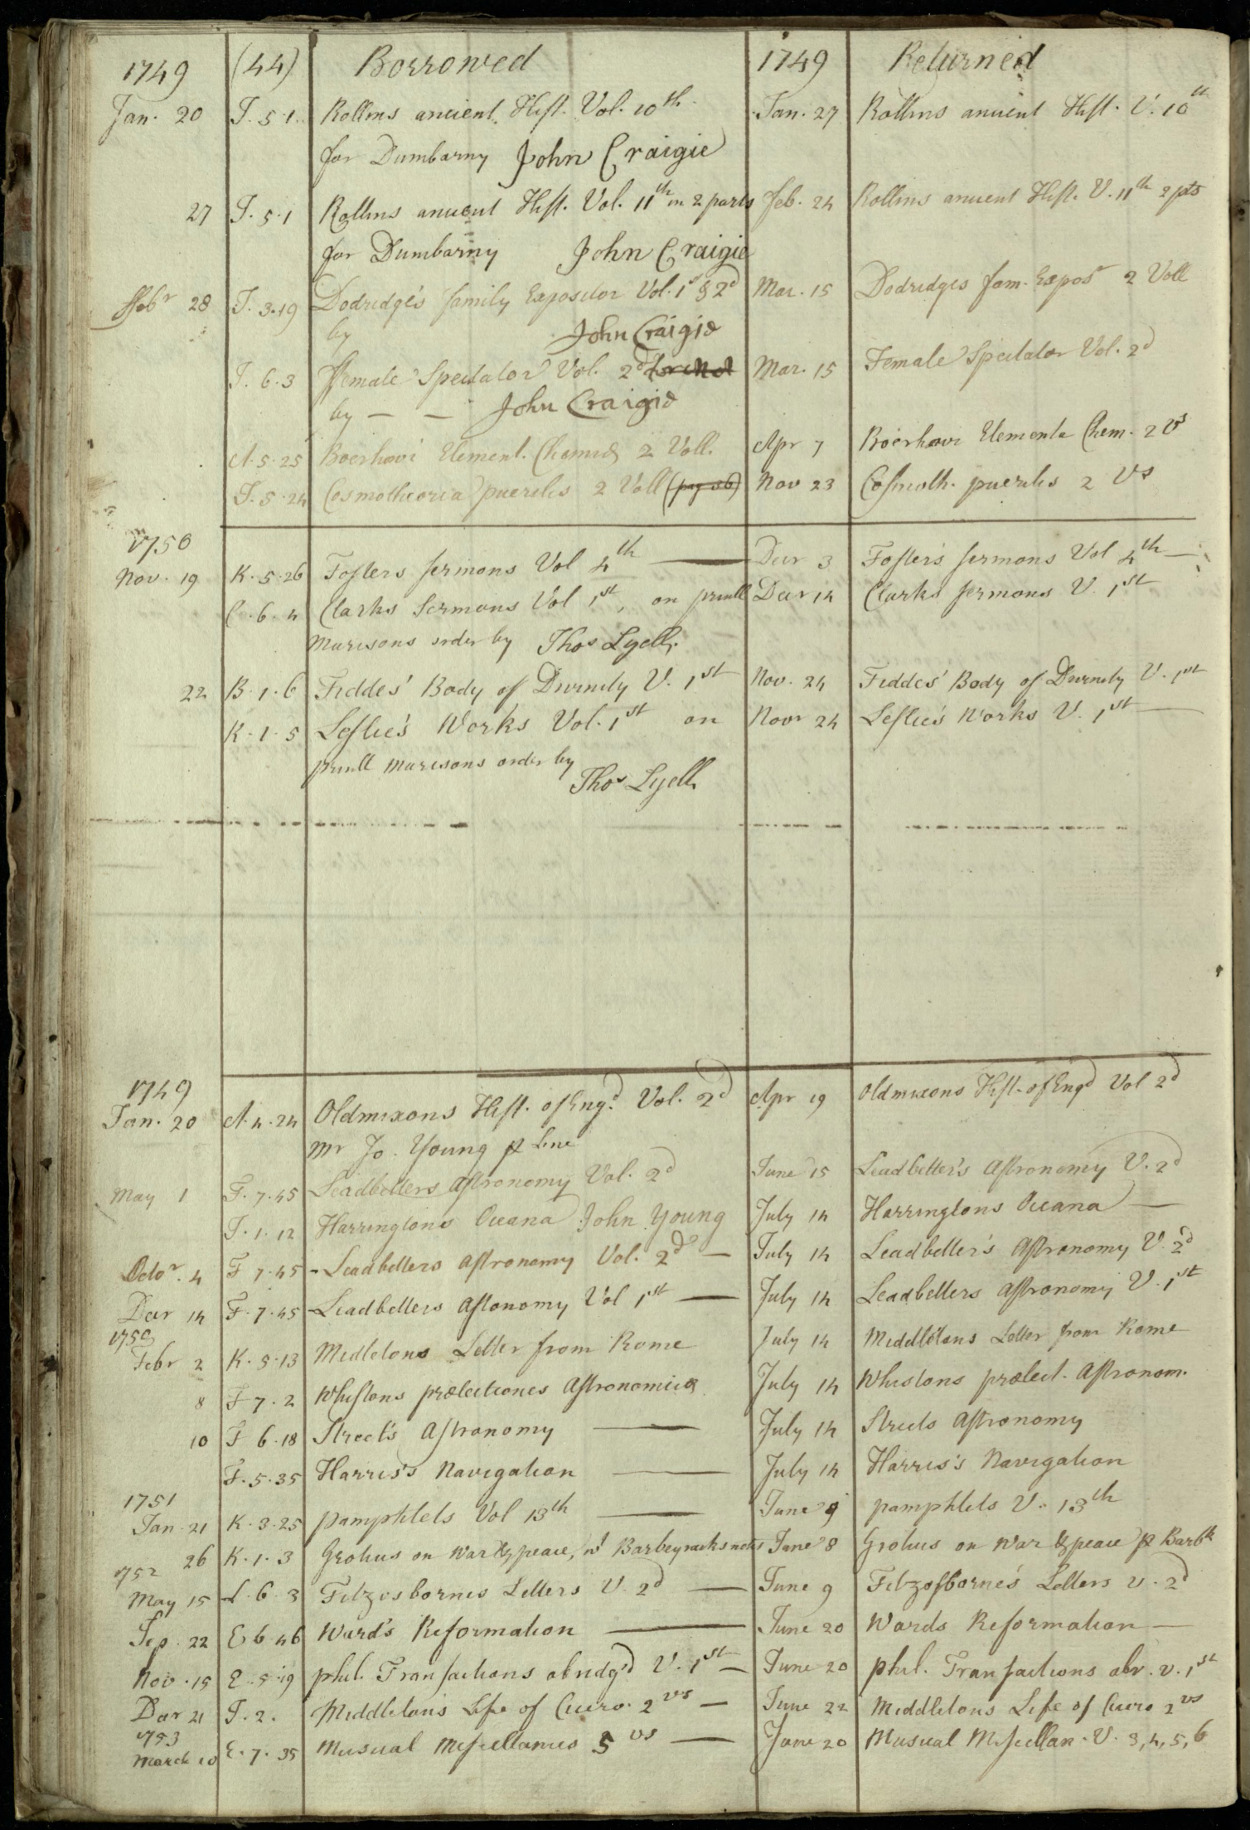 1749 (44) Borrowed 1749 Returned
Jan. 20 J. 5. 1. Rollins ancient Hist. Vol. 10th Jan. 27 Rollins ancient Hist. V. 10th
for Dumbarny John Craigie
27 J. 5. 1 Rollins ancient Hist. Vol. 11th in 2 parts Feb. 24 Rollins ancient Hist. V. 11th 2 pts
for Dumbarny John Craigie
Febr 28 J. 3. 19 Dodridge's family Expositor Vol. 1st & 2d Mar. 15 Dodridges fam. Expos 2 Voll
by John Craigie
J. 6. 3 ffemale Spectator Vol. 2d Mar. 15 Female Spectator Vol. 2d
by — — John Craigie
A. 5. 25 Boerhavi Element. Chemiæ 2 Voll. Apr 7 Boerhavi Elementa Chem. 2 vs
J. 5. 24 Cosmotheoria puerilis 2 Voll Nov 23 Cosmoth. puerilis 2 vs
1750
Nov. 19 K. 5. 26 Fosters sermons Vol 4th — Decr 3 Foster's sermons Vol 4th —
C. 6. 4 Clarks Sermons Vol 1st, on prinll Decr 14 Clarks sermons V. 1st
Murisons order by Thos Lyell
22 B. 1. 6 Fiddes' Body of Divinity V. 1st Nov. 24 Fiddes' Body of Divinity V. 1st
K. 1. 5 Leslie's Works Vol. 1st on Novr 24 Leslie's Works V. 1st —
prinll Murisons order by
Thos Lyell
1749
Jan. 20 A. 4. 24 Oldmixons Hist. of Engd. Vol. 2d Apr 19 Oldmixons Hist. of Engd Vol 2d
Mr Jo. Young p line
May 1 F. 7. 45 Leadbetters Astronomy Vol. 2d June 15 Leadbetter's Astronomy V. 2d
J. 1. 12 Harringtons Oceana John Young July 14 Harringtons Oceana —
Octor. 4 F 7. 45 Leadbetters Astronomy Vol. 2d — July 14 Leadbetter's Astronomy V. 2d
Decr 14 F. 7. 45 Leadbetters Astonomy Vol 1st — July 14 Leadbetters Astronomy V. 1st
1750
Febr 2 K. 5. 13 Midletons Letter from Rome July 14 Middletons Letter from Rome
8 F 7. 2 Whistons prælectiones Astronomicæ July 14 Whistons prælect. Astronom.
10 F 6. 18 Street's Astronomy — July 14 Streets Astronomy
F. 5. 35 Harris's Navigation — July 14 Harris's Navigation
1751
Jan. 21 K. 3. 25 pamphlets Vol 13th — June 9 pamphlets V. 13th
26 K. 1. 3 Grotius on War & peace, wt Barbeyracks notes June 8 Grotius on War & peace p Barbk
1752
May 15 L. 6. 3 Fitzosbornes Letters V. 2d — June 9 Fitzosborne's Letters v. 2d
Sep. 22 E 6 46 Ward's Reformation — June 20 Wards Reformation —
Nov. 15 E. 5. 19 phil. Transactions abridg'd V. 1st — June 20 phil. Transactions abr. v. 1st
Decr 21 J. 2. Middleton's Life of Cicero. 2 vs — June 22 Middletons Life of Cicero 2 vs
1753
March 10 E. 7. 35 Musical Miscellanies 5 vs — June 20 Musical Miscellan. V. 3, 4, 5, 6